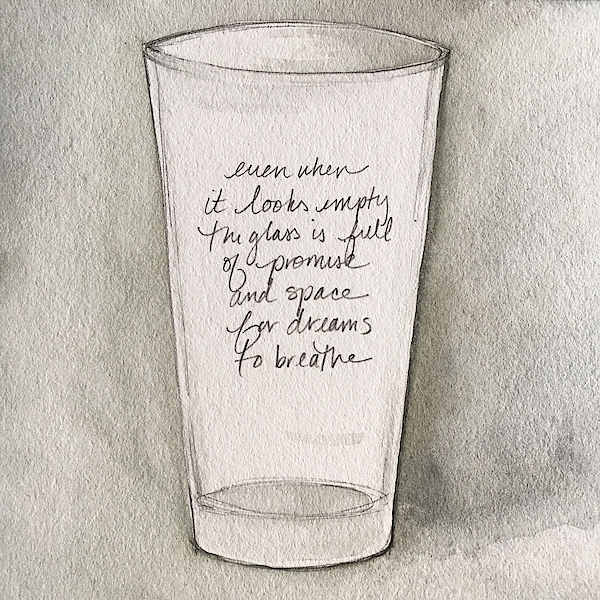 even when
it looks empty
the glass is full
of promise
and space
for dreams
to breathe